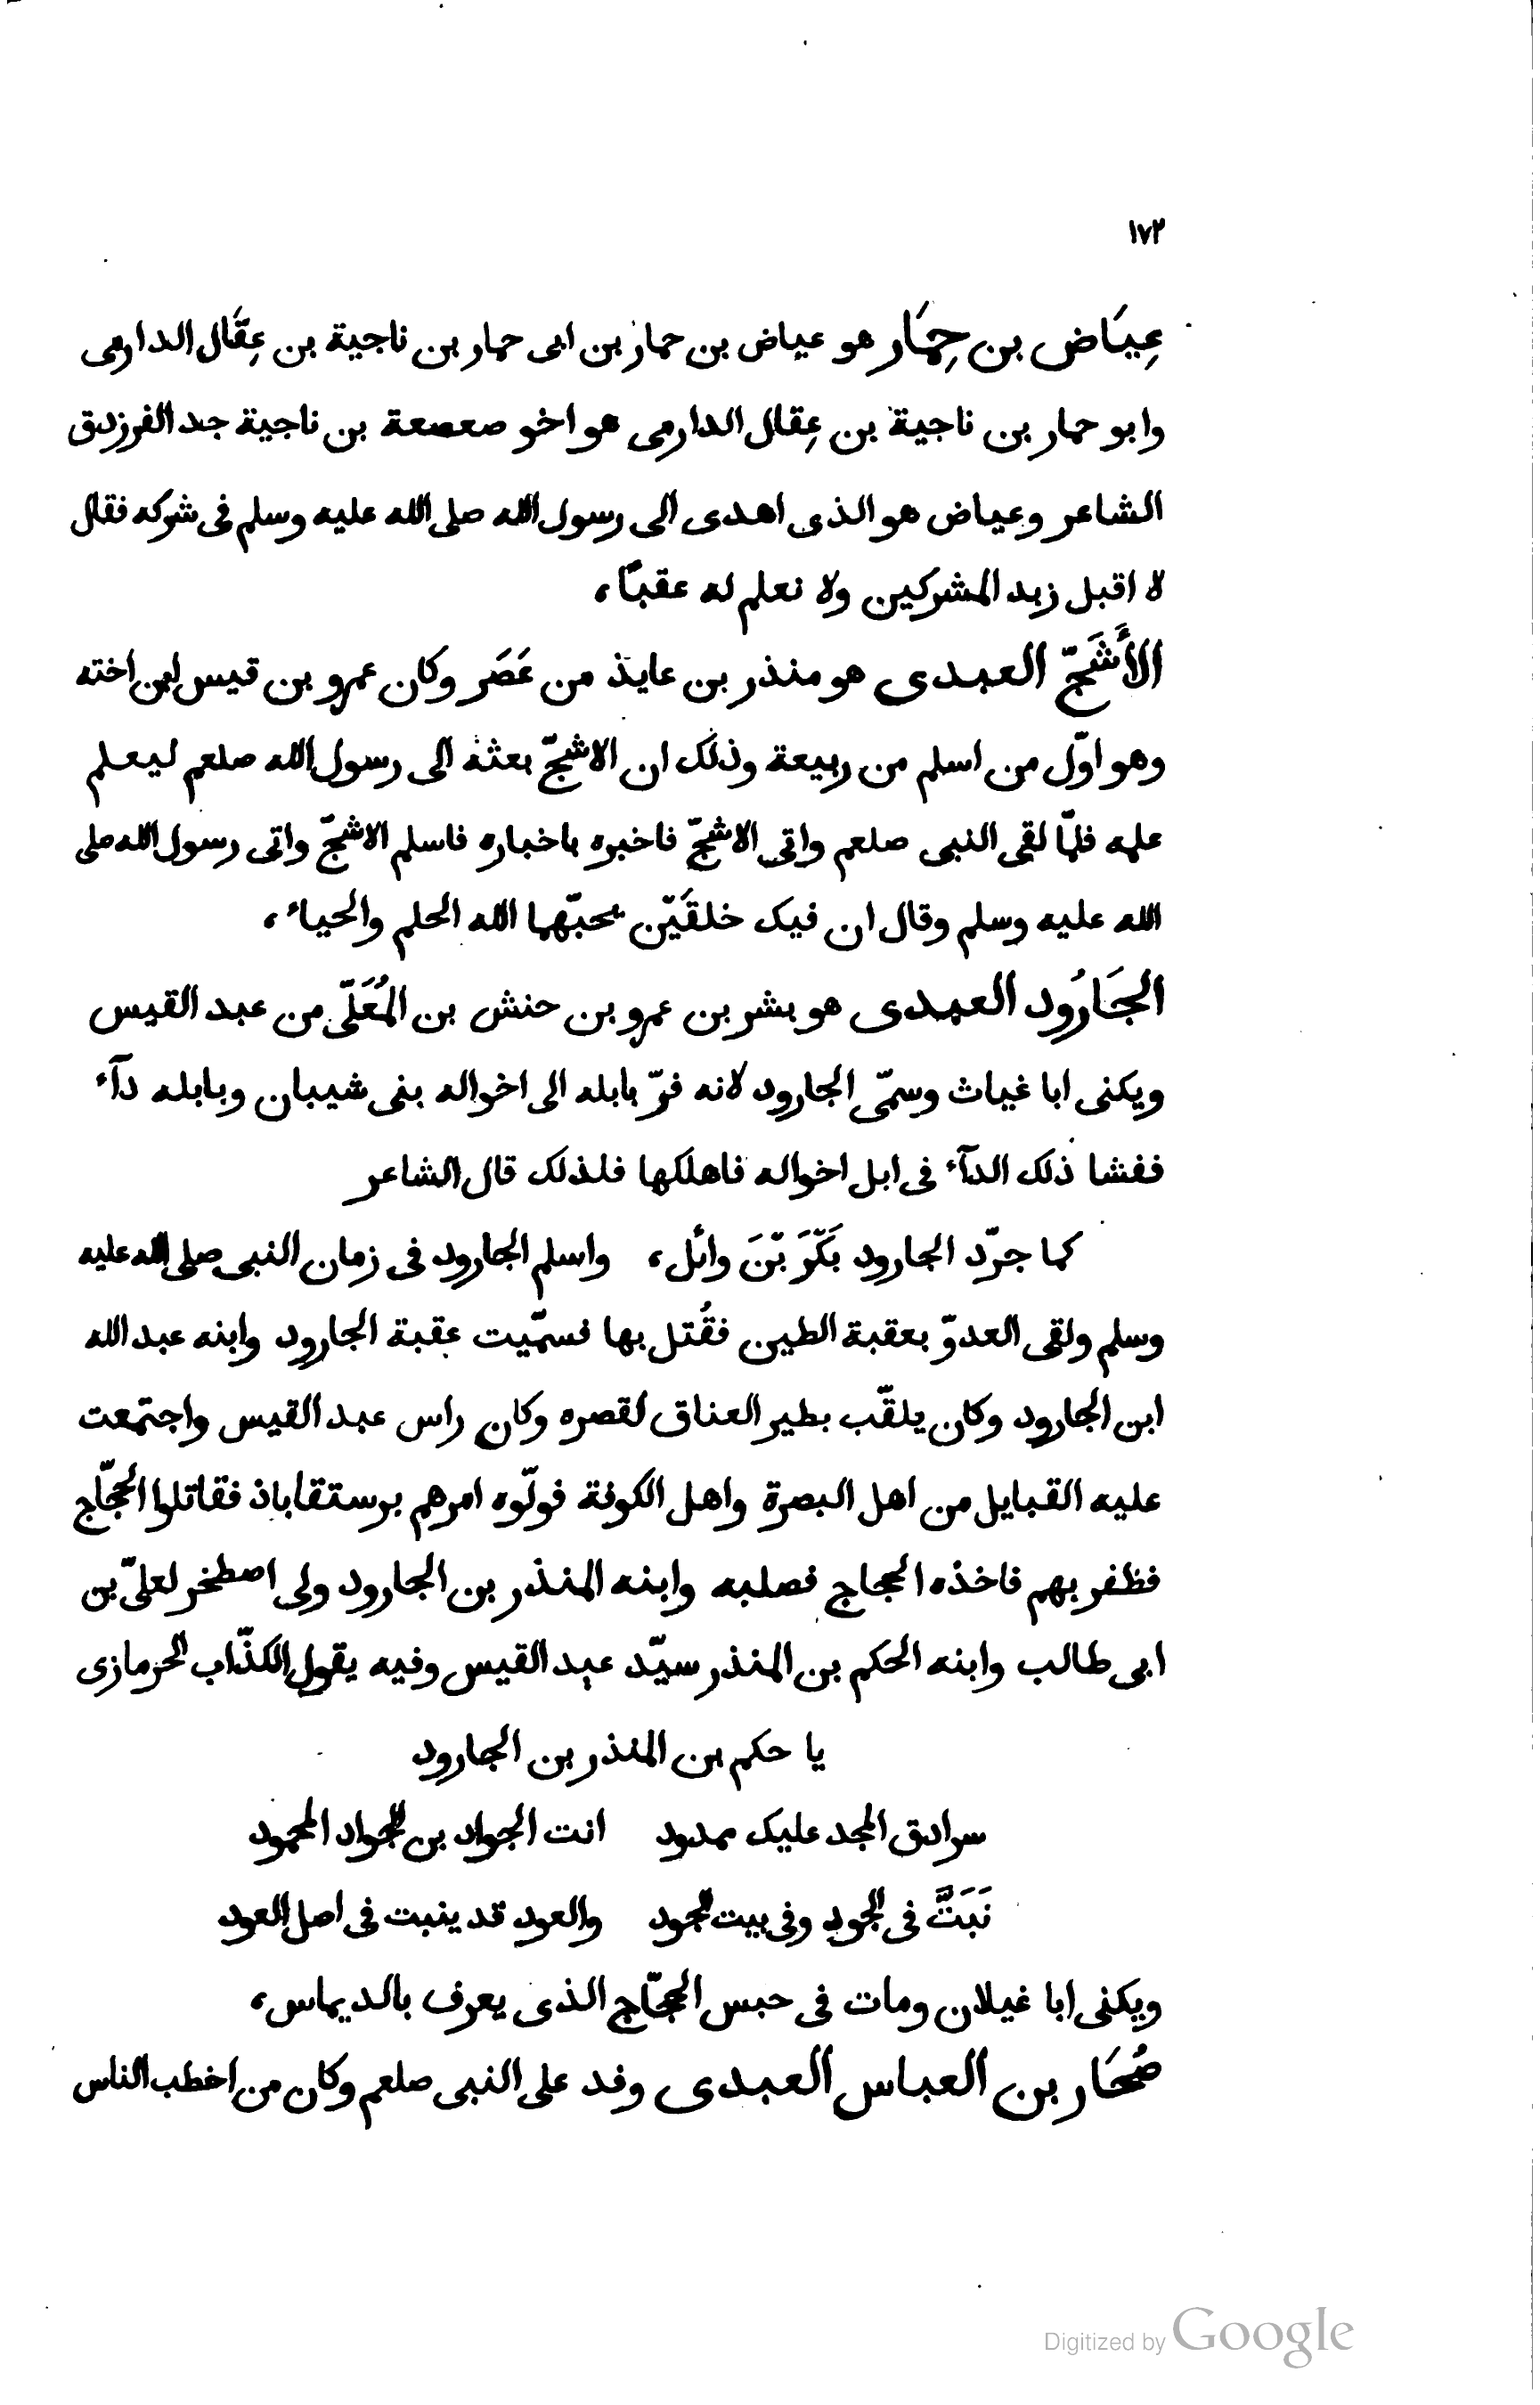 ١٧٢
عِيَاض بن حِمَار هو عياض بن حمار بن ابى حمار بن ناجية بن عِقَال الدارمى
وابو حمار بن ناجية بن عِقال الدارمى هو اخو صعصعة بن ناجية جد الفرزدق
الشاعر وعياض هو الذى اهدى الى رسول الله صلى الله عليه وسلم فى شركه فقال
لا اقبل زبد المشركين ولا نعلم له عقبًا،
الأَشَجّ العبدى هو منذر بن عايذ من عَصَر وكان عمرو بن قيس ابن اخته
وهو اوّل من اسلم من ربيعة وذلك ان الاشجّ بعثه الى رسول الله صلعم ليعلم
علمه فلمّا لقى النبى صلعم واتى الاشجّ فاخبره باخباره فاسلم الاشجّ واتى رسول الله صلى
الله عليه وسلم وقال ان فيك خلقَيْن يحبّهما الله الحلم والحياء،
الجَارُود العبدى هو بشر بن عمرو بن حنش بن المُعَلّى من عبد القيس
ويكنى ابا غياث وسمّى الجارود لانه فرّ بابله الى اخواله بنى شيبان وبابله دآء
ففشا ذلك الدآء فى ابل اخواله فاهلكها فلذلك قال الشاعر
كما جرّد الجارود بَكْرَ بْنَ وائل، واسلم الجارود فى زمان النبى صلى الله عليه
وسلم ولقى العدوّ بعقبة الطين فقُتل بها فسمّيت عقبة الجارود وابنه عبد الله
ابن الجارود وكان يلقّب بطير العناق لقصره وكان راس عبد القيس واجتمعت
عليه القبايل من اهل البصرة واهل الكوفة فولّوه امرهم برستقاباذ فقاتلوا الحجّاج
فظفر بهم فاخذه الحجاج فصلبه وابنه المنذر بن الجارود ولى اصطخر لعلىّ بن
ابى طالب وابنه الحكم بن المنذر سيّد عبد القيس وفيه يقول الكذّاب الحرمازى
يا حكم بن المنذر بن الجارود
سرادق المجد عليك ممدود انت الجواد بن الجواد المحمود
نَبَتَّ فى الجود وفى بيت الجود والعود قد ينبت فى اصل العود
ويكنى ابا غيلان ومات فى حبس الحجّاج الذى يعرف بالديماس،
صُحَار بن العباس العبدى وفد على النبى صلعم وكان من اخطب الناس
Digitized by Google